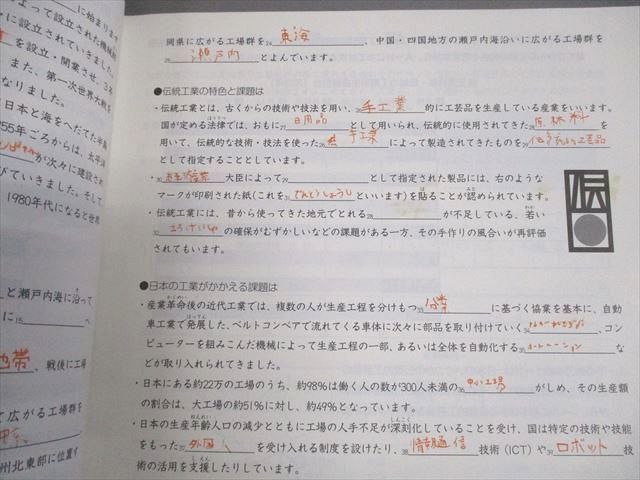 に始まります
よって設立された機械
を設立・開業させ、3
また、第一次世界大戦を
なりました。
日本と海をへだてた半島
55年ごろからは、太平洋
が次々に建設され
びていきました。そして
1980年代になると世界
と瀬戸内海に沿って
に15 へ
地帯、戦後に工場
て広がる工場群を
州北東部に位置す
岡県に広がる工場群を24 東海 、中国・四国地方の瀬戸内海沿いに広がる工場群を
25 瀬戸内 とよんでいます。
●伝統工業の特色と課題は
・伝統工業とは、古くからの技術や技法を用い、26 手工業 的に工芸品を生産している産業をいいます。
国が定める法律では、おもに27 日用品 として用いられ、伝統的に使用されてきた28 原材料
を用いて、伝統的な技術・技法を使った 手工業 によって製造されてきたものを 伝統的工芸品
として指定することとしています。
・ 経済産業 大臣によって として指定された製品には、右のような
マークが印刷された紙(これを31 でんとうしょうし といいます)を貼ることが認められています。
・伝統工業には、昔から使ってきた地元でとれる28 が不足している、若い
32 こうけいしゃ の確保がむずかしいなどの課題がある一方、その手作りの風合いが再評価
されてもいます。
●日本の工業がかかえる課題は
・産業革命後の近代工業では、複数の人が生産工程を分けもつ33 分業 に基づく協業を基本に、自動
車工業で発展した、ベルトコンベアで流れてくる車体に次々に部品を取り付けていく34 、コン
ピューターを組みこんだ機械によって生産工程の一部、あるいは全体を自動化する35 オートメーション な
どが取り入れられてきました。
・日本にある約22万の工場のうち、約98%は働く人の数が300人未満の36 中小工場 がしめ、その生産額
の割合は、大工場の約51%に対し、約49%となっています。
・日本の生産年齢人口の減少とともに工場の人手不足が深刻化していることを受け、国は特定の技術や技能
をもった37 外国人 を受け入れる制度を設けたり、38 情報通信 技術(ICT)や39 ロボット 技
術の活用を支援したりしています。